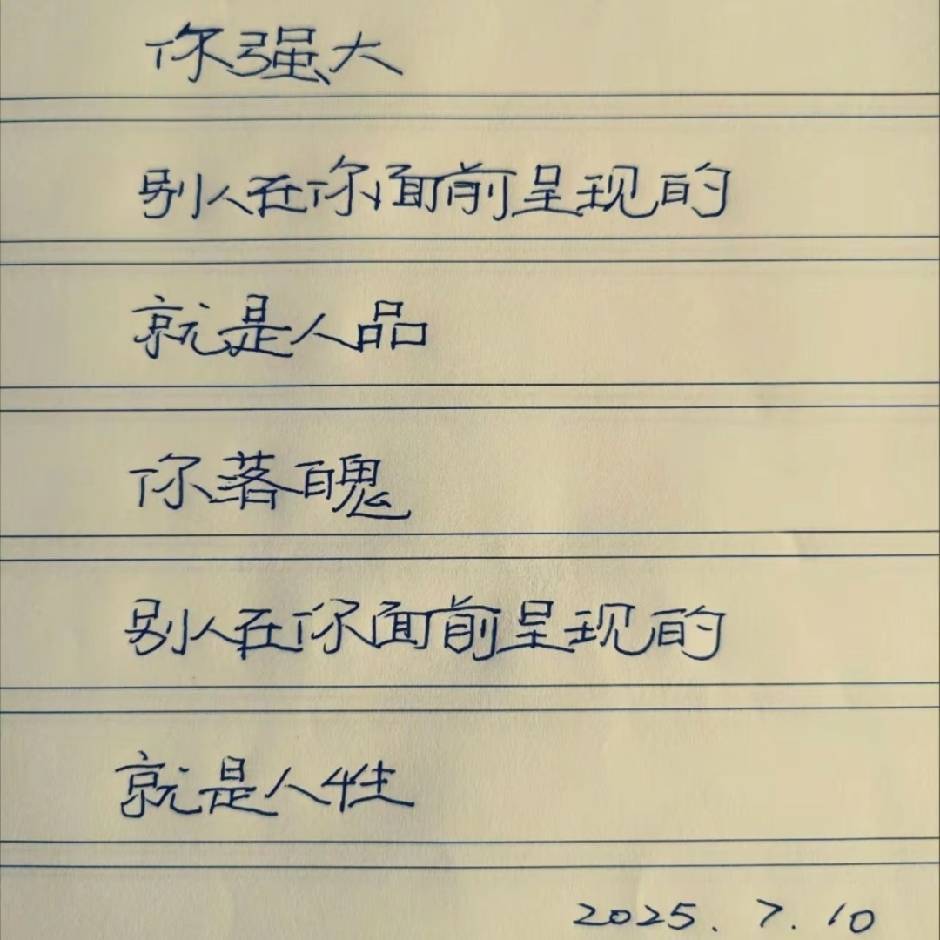 你强大
别人在你面前呈现的
就是人品
你落魄
别人在你面前呈现的
就是人性
2025.7.10